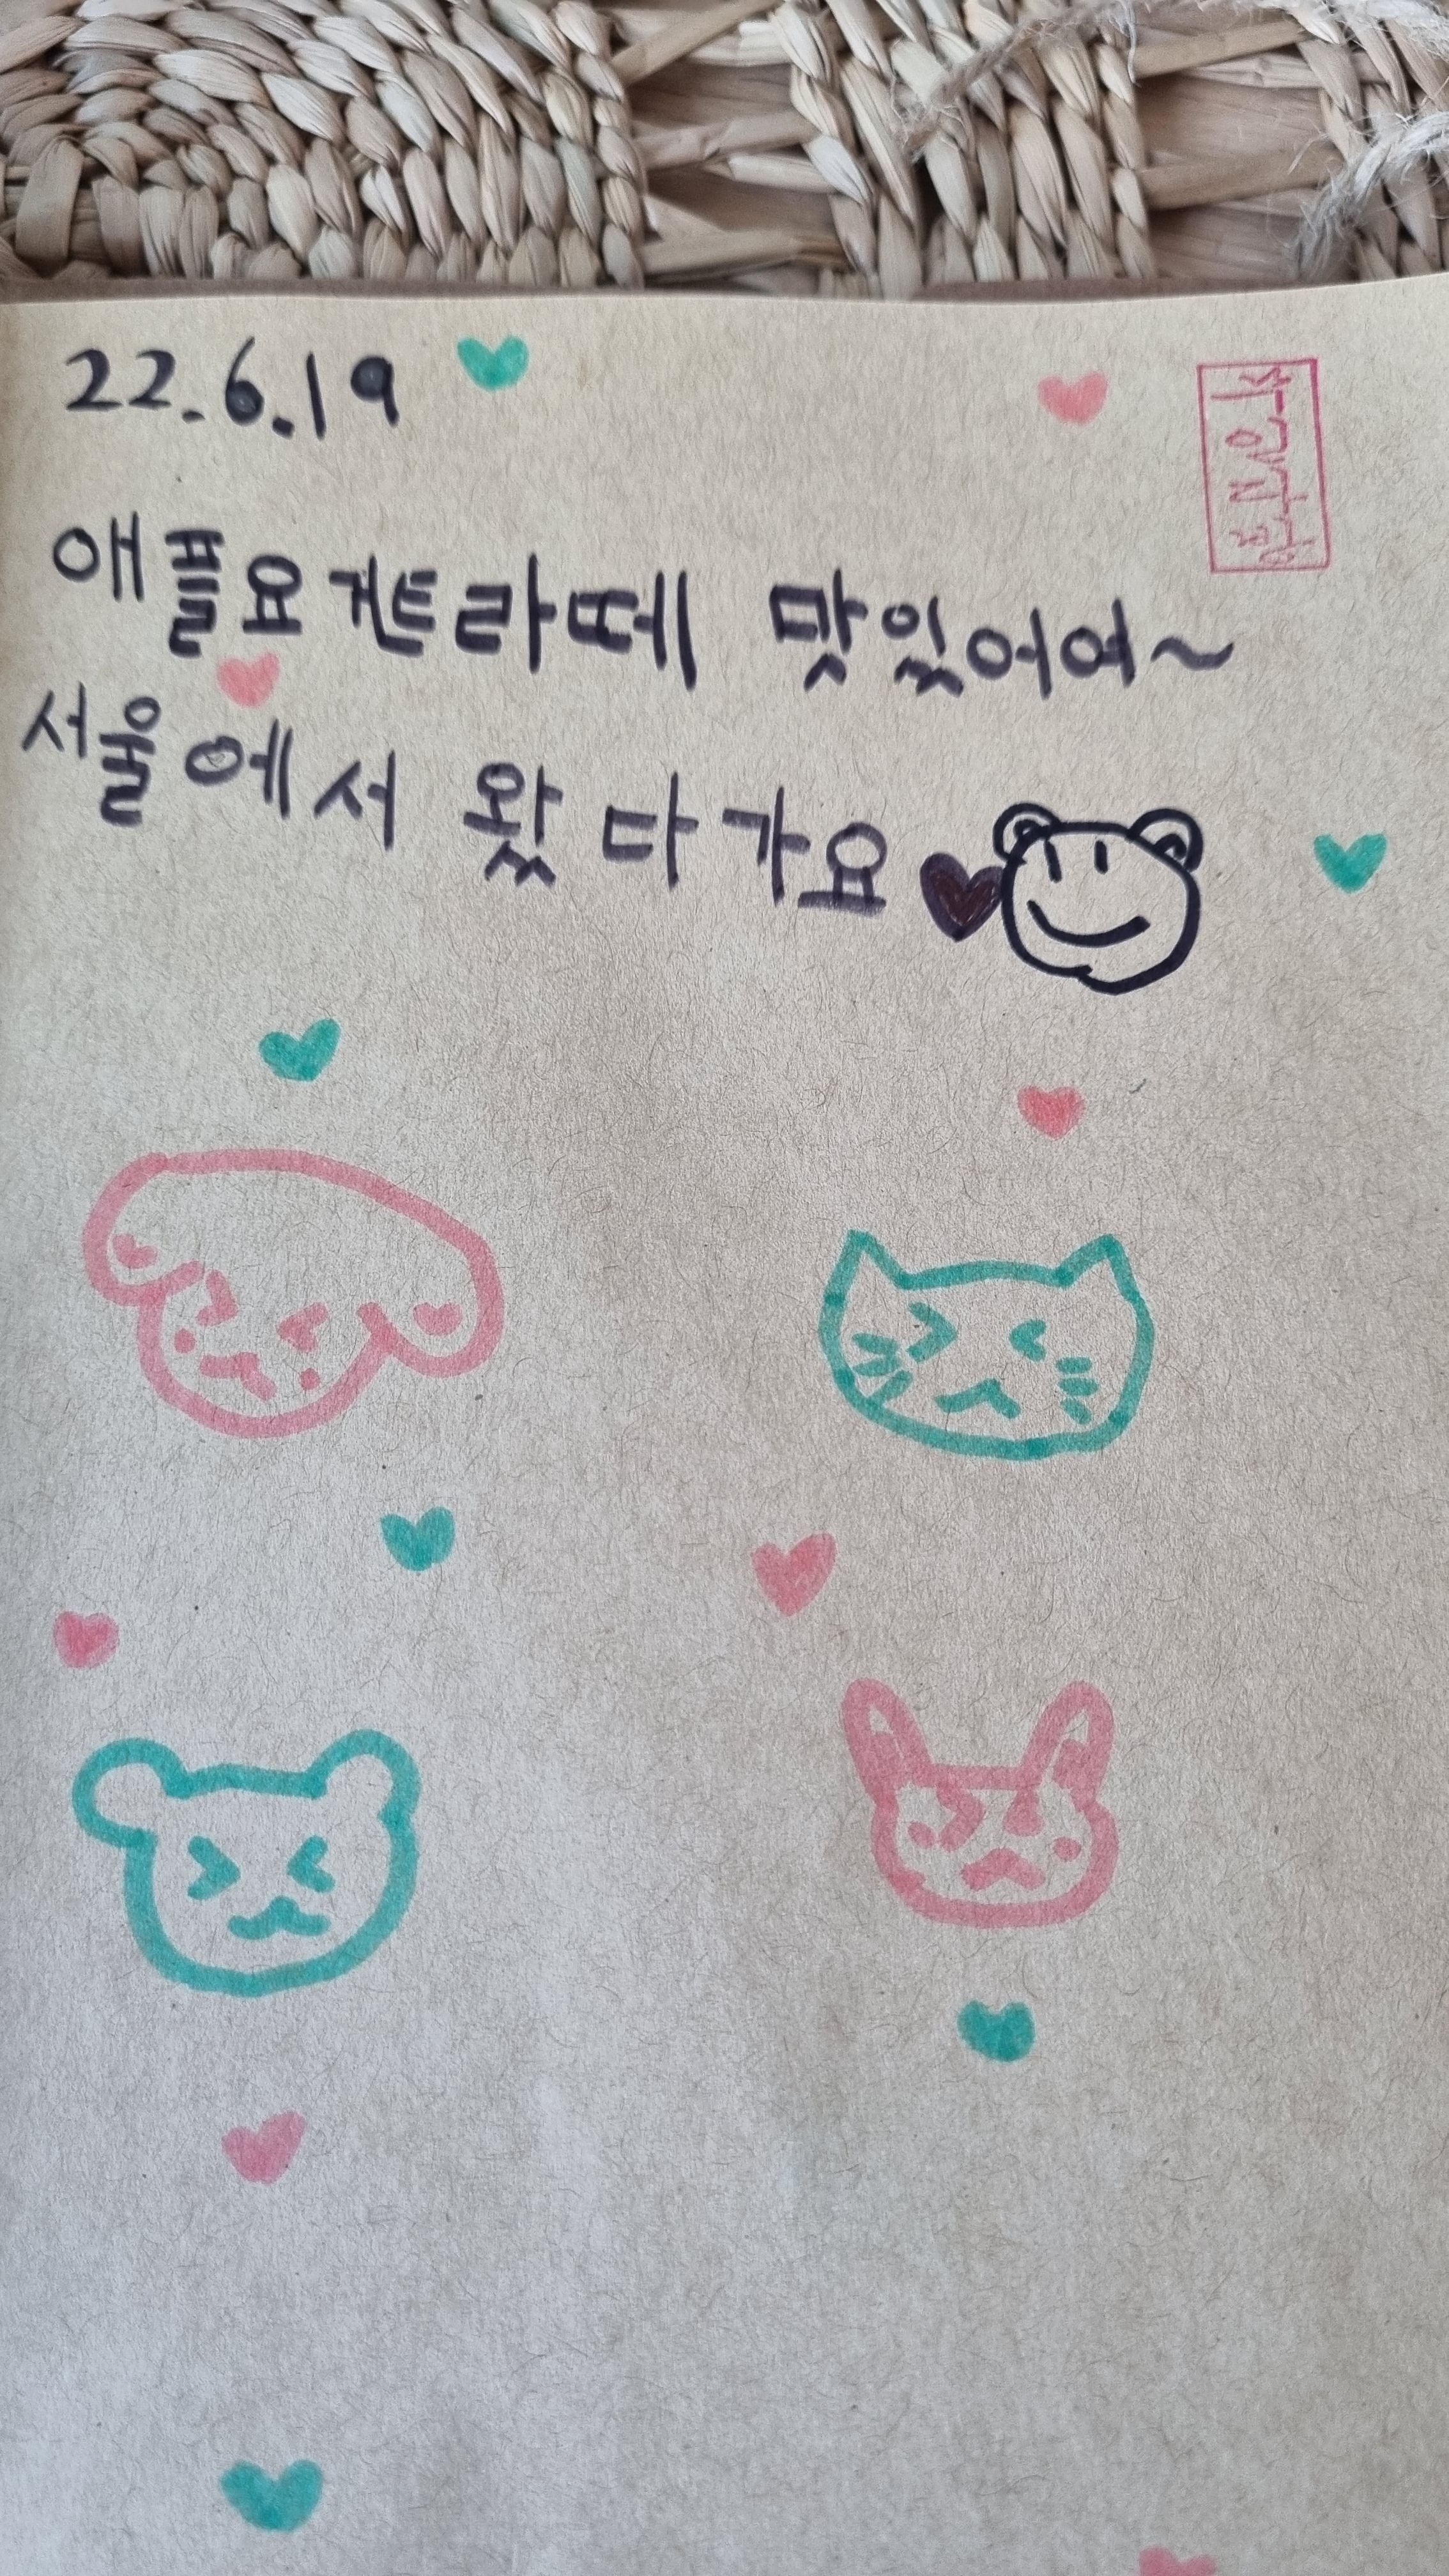 22.6.19
애플요거트라떼 맛있어여~
서울에서 왔다가요